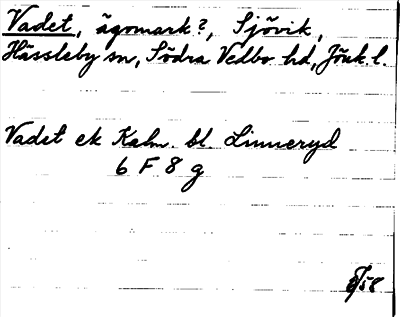 Vadet, ägomark?, Sjövik,
Hässleby sn, Södra Vedbo hd, Jönk. l.
Vadet ek Kalm. bl. Linneryd
6 F 8 g